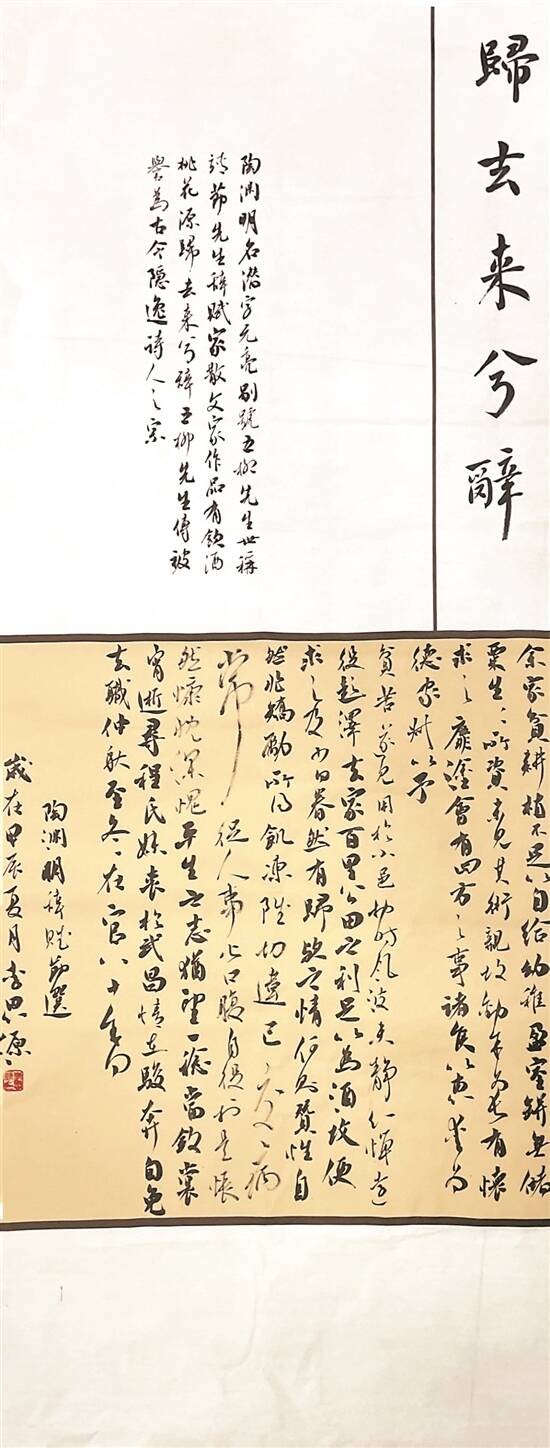 歸去来兮辭
陶渊明名潜字元亮别號五柳先生世稱
靖節先生辭賦家散文家作品有飲酒
桃花源歸去来兮辭五柳先生傳被
譽為古今隐逸詩人之宗
余家貧耕植不足以自給幼稚盈室缾無儲
粟生々所資未見其術親故勸余為長有懷
求之靡塗會有四方之事諸侯以惠愛為
德家叔以予
貧苦遂見用於小邑於時風波未静心憚遠
役彭澤去家百里公田之利足以為酒故便
求之及少日眷然有歸欤之情何則質性自
然非矯勵所得飢凍雖切違已交病
嘗從人事皆口腹自役於是悵
然慷慨深愧平生之志猶望一稔當斂裳
宵逝尋程氏妹喪於武昌情在駿奔自免
去職仲秋至冬在官八十余日
陶渊明辭賦節選
歲在甲辰夏月李思源